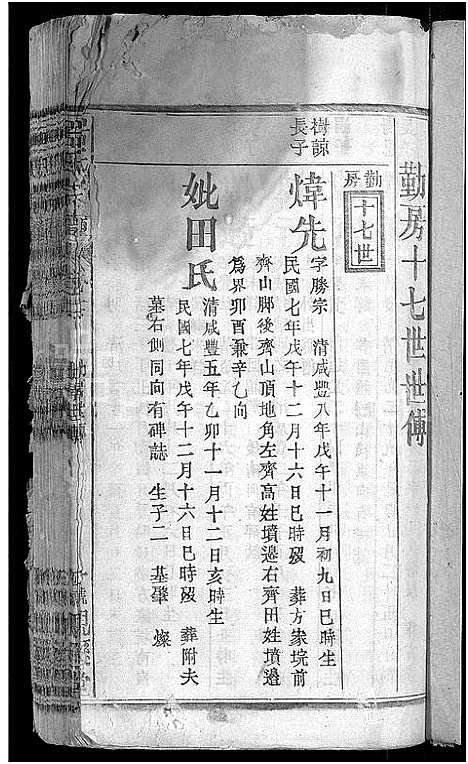 勤房十七世世傳
勤房
十七世
樹諒
長子
煒先
字勝宗 清咸豐八年戊午十一月初九日巳時生
民國七年戊午十二月十六日巳時歿 葬方家垸前
齊山脚後齊山頂地角左齊高姓墳邊右齊田姓墳邊
爲界卯酉兼辛乙向
妣田氏
清咸豐五年乙卯十一月十二日亥時生
民國七年戊午十二月十六日巳時歿 葬附夫
墓右側同向有碑誌 生子二 基肇 燦